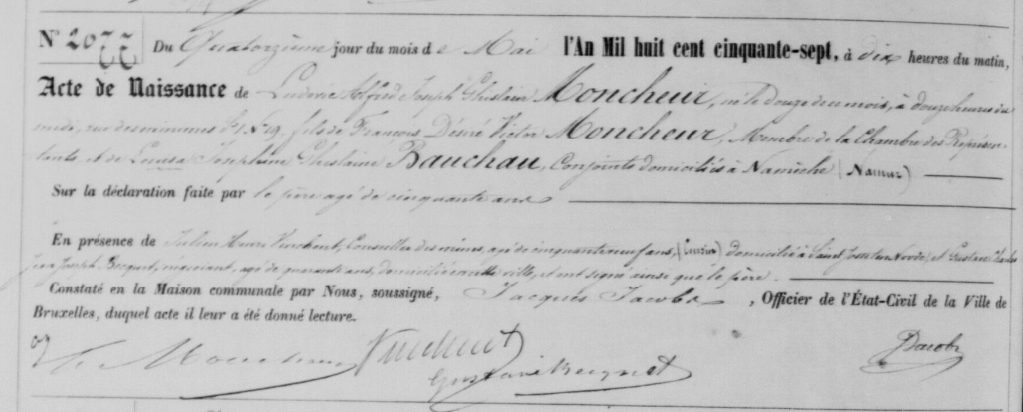 N° 2055 Du Quatorzième jour du mois de Mai l'An Mil huit cent cinquante-sept, à dix heures du matin,
Acte de Naissance de Ludovic Alfred Joseph Ghislain Moncheur, né le douze du mois, à douze heures du
midi, rue des minimes S.1 N.19, fils de François Désiré Victor Moncheur, Membre de la Chambre des Représen-
tants et de Louise Josephine Ghislaine Bauchau, Conjoints domiciliés à Namèche (Namur)
Sur la déclaration faite par le père agé de cinquante ans
En présence de Julien Henri Vinchent, Conseiller des mines, agé de cinquante neuf ans, (Cousin) domicilié à Saint Josse ten Noode, et Gustave Charles
Jean Joseph Becquet, négociant, agé de quarante ans, domicilié en cette ville, et ont signé ainsi que le père.
Constaté en la Maison communale par Nous, soussigné, Jacques Jacobs, Officier de l'État-Civil de la Ville de
Bruxelles, duquel acte il leur a été donné lecture.
Moncheur Vinchent
Gustave Becquet
Jacobs